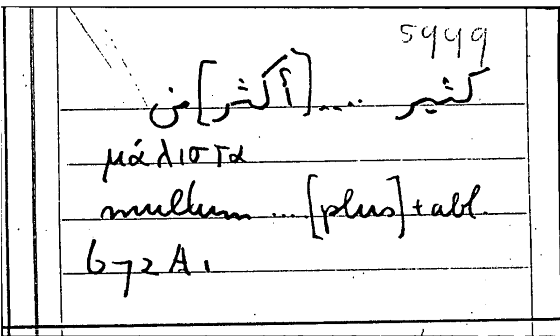 5449
كثير .... [أكثر] من
μάλιστα
multum ... [plus] + abl.
672 A 1